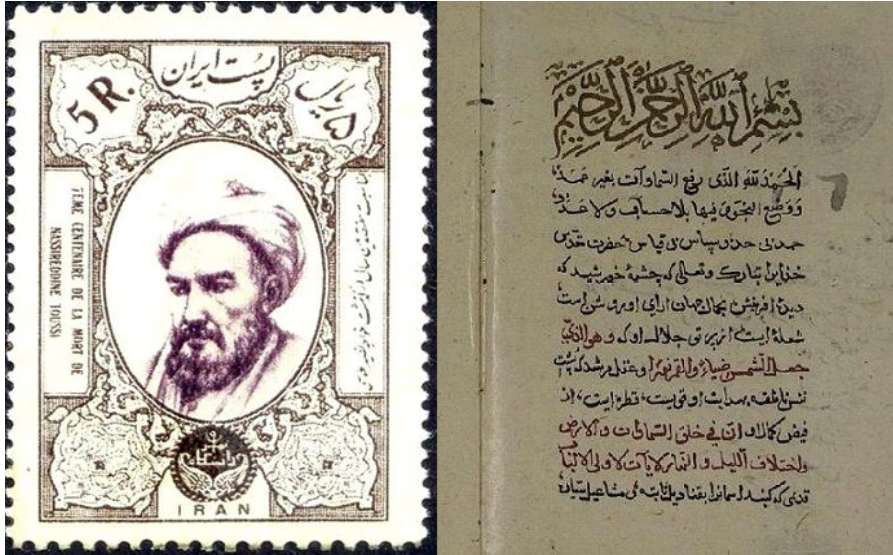 5 R.
پست ایران
۵ ریال
7EME CENTENAIRE DE LA MORT DE
NASSIREDDINE TOUSSI
IRAN
بسم الله الرحمن الرحیم
الحمد لله الذی رفع السماوات بغیر عمد
ووضع النجوم فیها بلا حساب ولا عدد
حمد بی حد و سپاس بی قیاس حضرت
خدایرا تبارک و تعالی که چشمهٔ خورشید که
دیدهٔ آفرینش بجمال جهان آرای او روشن است
شعلهٔ ایست از پرتو جلال او که وهو الذی
جعل الشمس ضیاء والقمر نورا و عقل مرشد که
نفس ناطقه بهدایت او قطره ایست از
فیض کمال او ان فی خلق السماوات والارض
واختلاف اللیل والنهار لایات لاولی الالباب
که کنبد اسمانرا بقنادیل ثابته